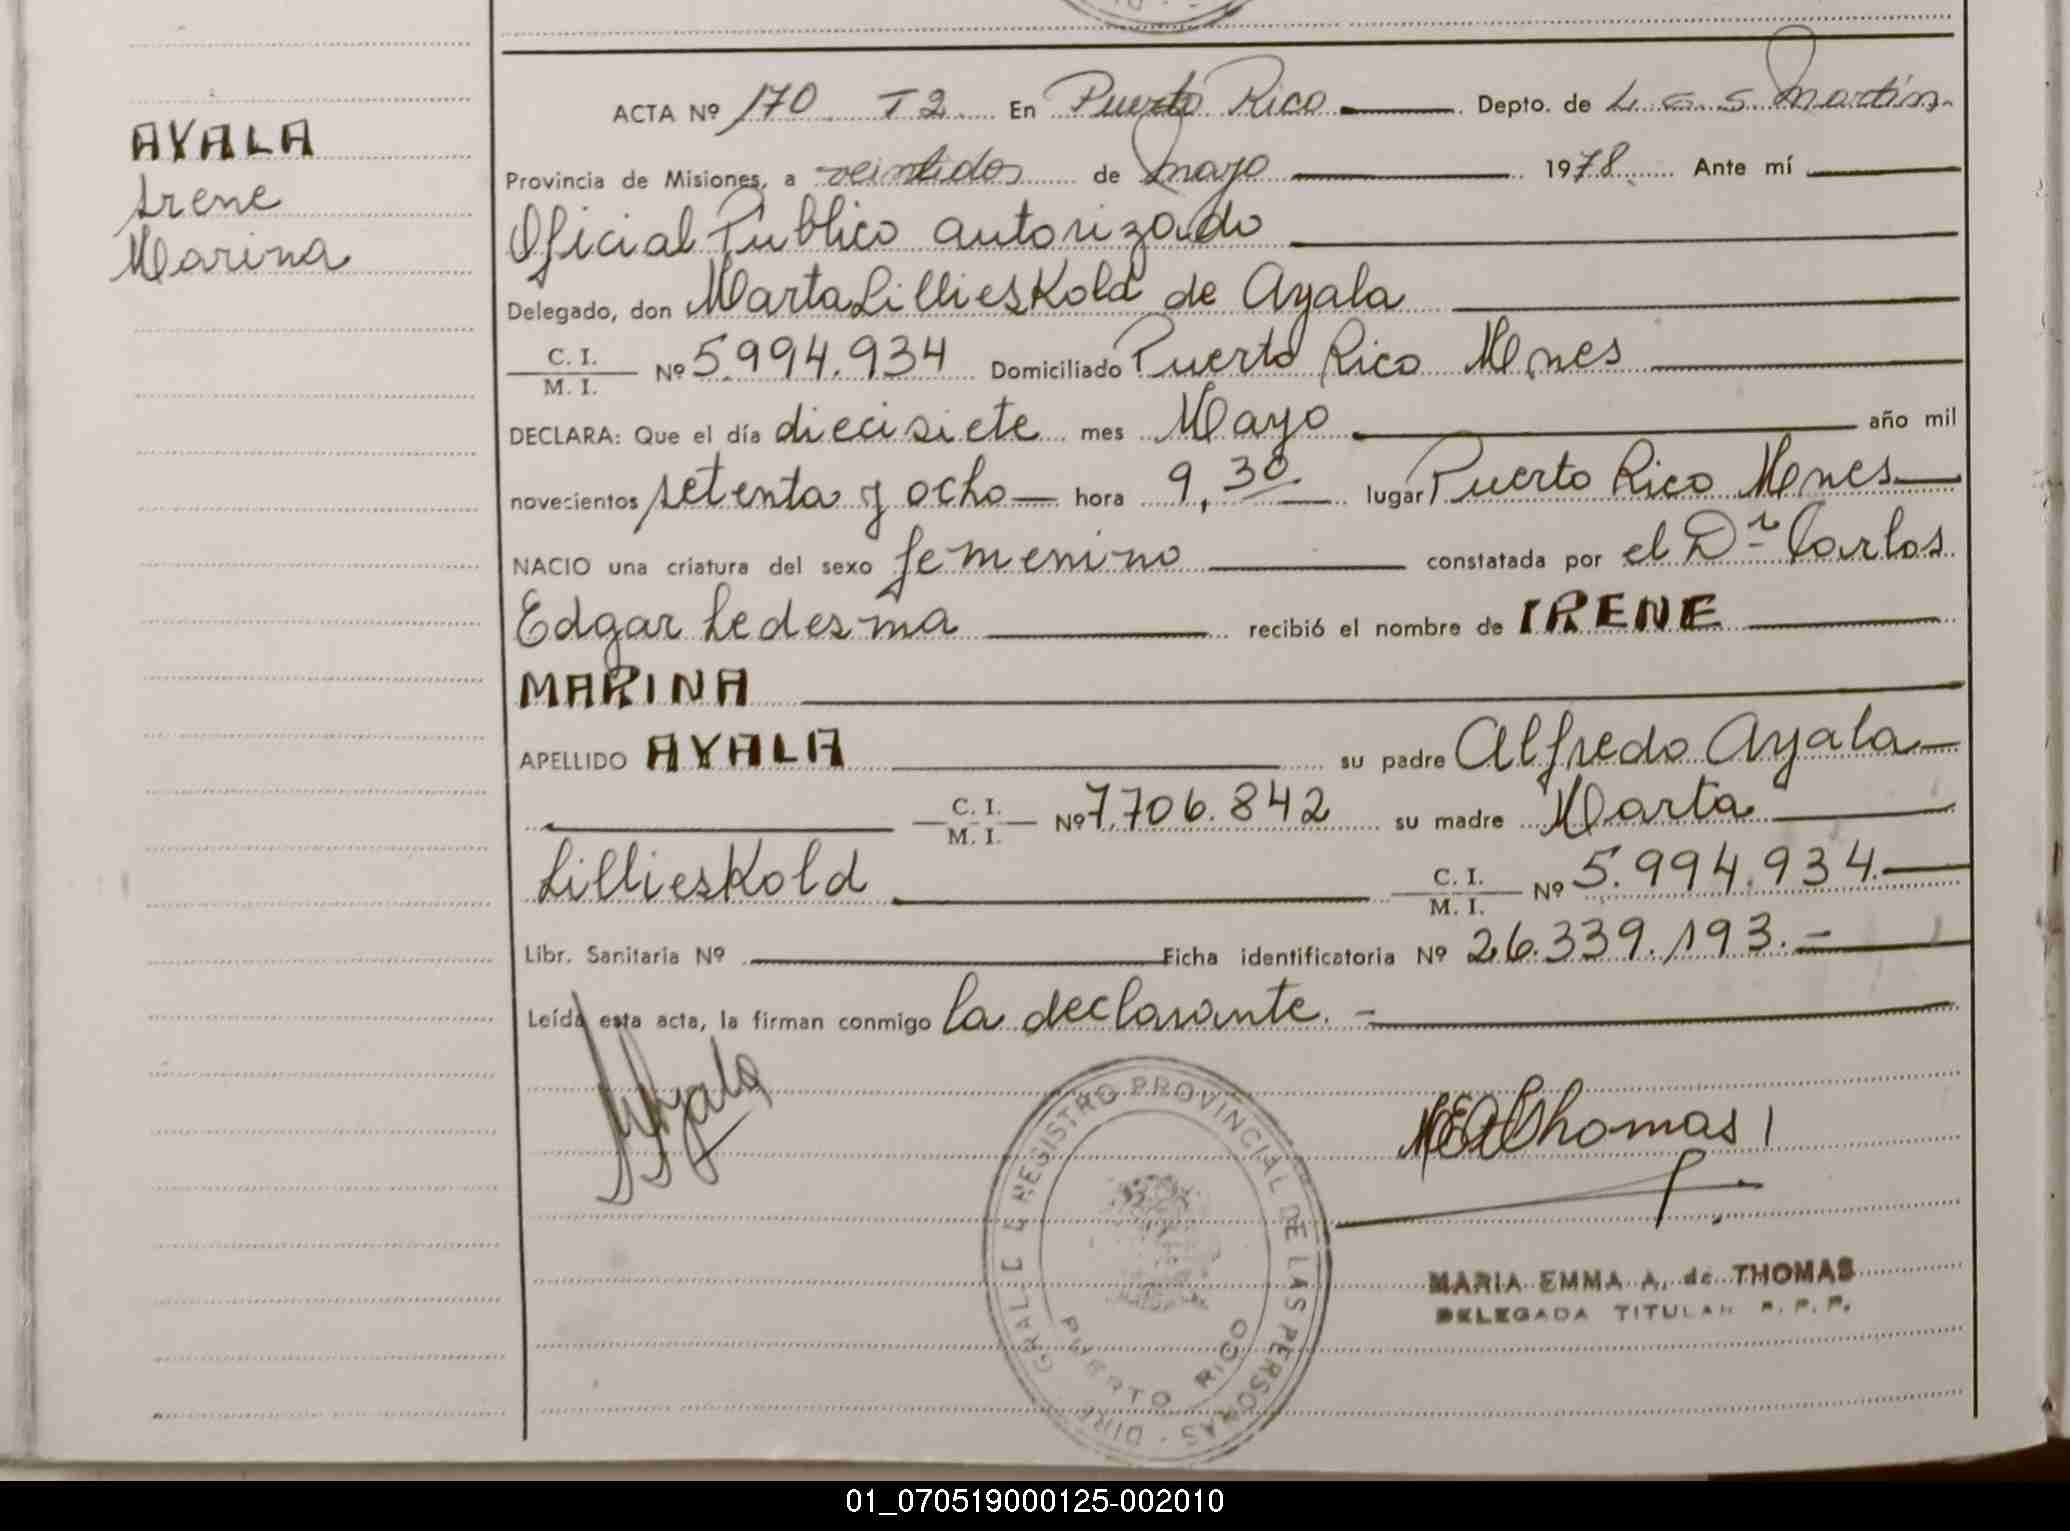 AYALA
Irene
Marina
ACTA Nº 170 T2 En Puerto Rico Depto. de L. G. S. Martín.
Provincia de Misiones, a veintidos de mayo 1978. Ante mí
Oficial Público autorizado
Delegado, don Marta Lillieskold de Ayala
C. I.
M. I. Nº 5.994.934 Domiciliado Puerto Rico Mnes
DECLARA: Que el día diecisiete mes Mayo año mil
novecientos setenta y ocho hora 9,30 lugar Puerto Rico Mnes
NACIO una criatura del sexo femenino constatada por el Dr Carlos
Edgar Ledesma recibió el nombre de IRENE
MARINA
APELLIDO AYALA su padre Alfredo Ayala
C. I.
M. I. Nº 7.706.842 su madre Marta
Lillieskold C. I.
M. I. Nº 5.994.934.
Libr. Sanitaria Nº Ficha identificatoria Nº 26.339.193.-
Leída esta acta, la firman conmigo la declarante. -
MAyala
MEAThomas
DIRE. GRAL. DE REGISTRO PROVINCIAL DE LAS PERSONAS -
PUERTO RICO
MARIA EMMA A. de THOMAS
DELEGADA TITULAR R. P. P.
01_070519000125-002010